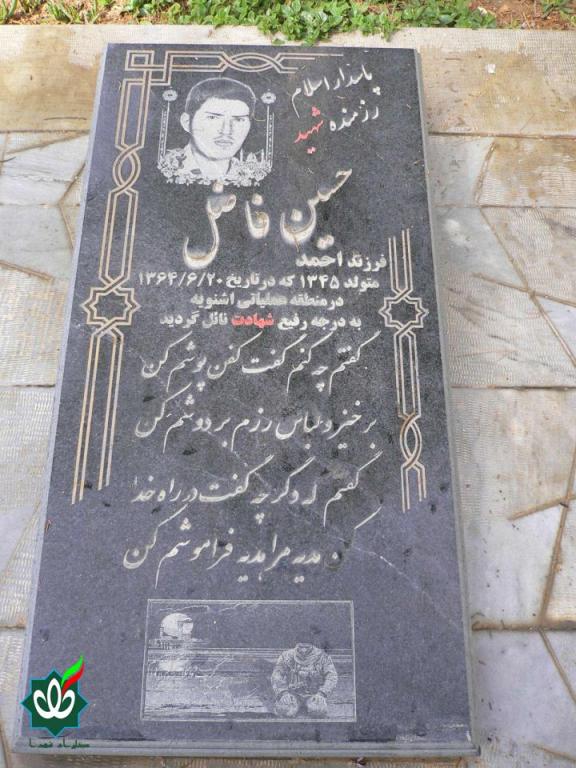 پاسدار اسلام
رزمنده شهید
حسین فاضل
فرزند احمد
متولد ۱۳۴۵ که در تاریخ ۱۳۶۴/۶/۲۰
در منطقه عملیاتی اشنویه
به درجه رفیع شهادت نائل گردید
گفتم چه کنم گفت کفن پوشم کن
برخیز و لباس رزم بر دوشم کن
گفتم که دگر چه گفت در راه خدا
کن هدیه مرا هدیه فراموشم کن